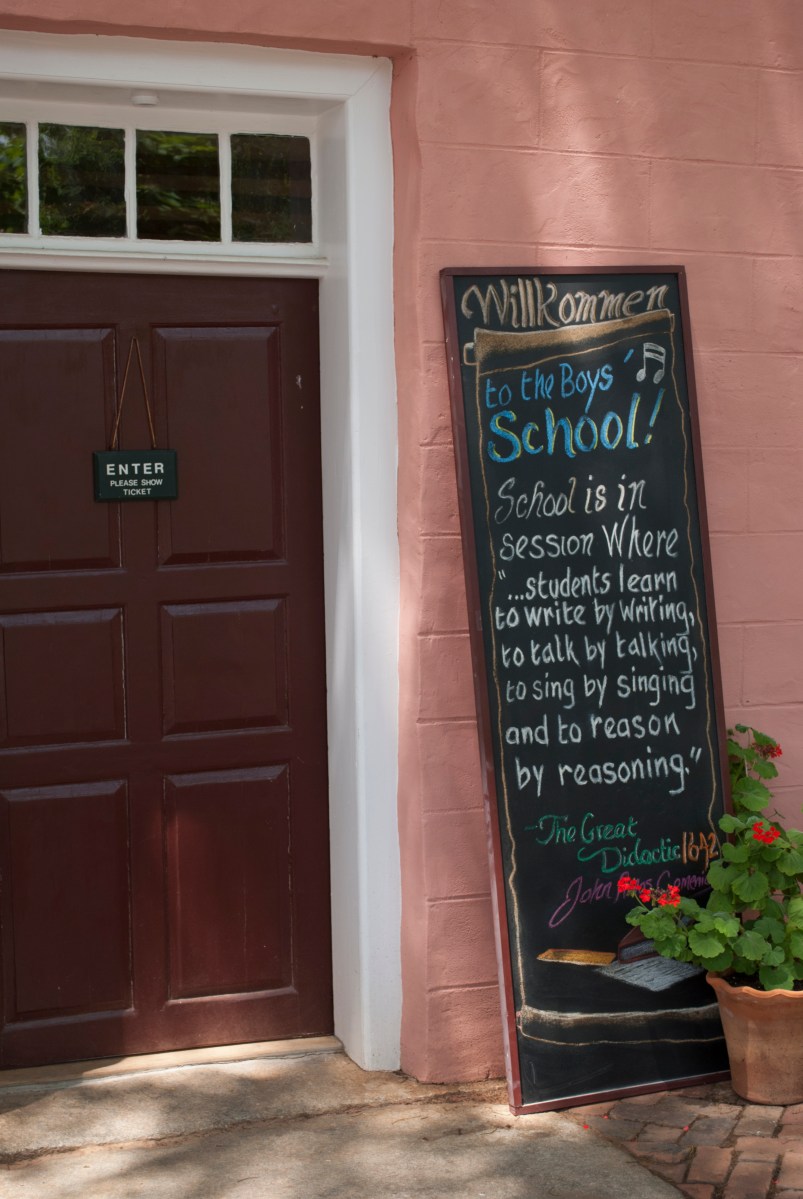 ENTER
PLEASE SHOW
TICKET
Willkommen
to the Boys'
School!
School is in
session Where
"...students learn
to write by writing,
to talk by talking,
to sing by singing
and to reason
by reasoning."
-The Great
Didactic 1642
John